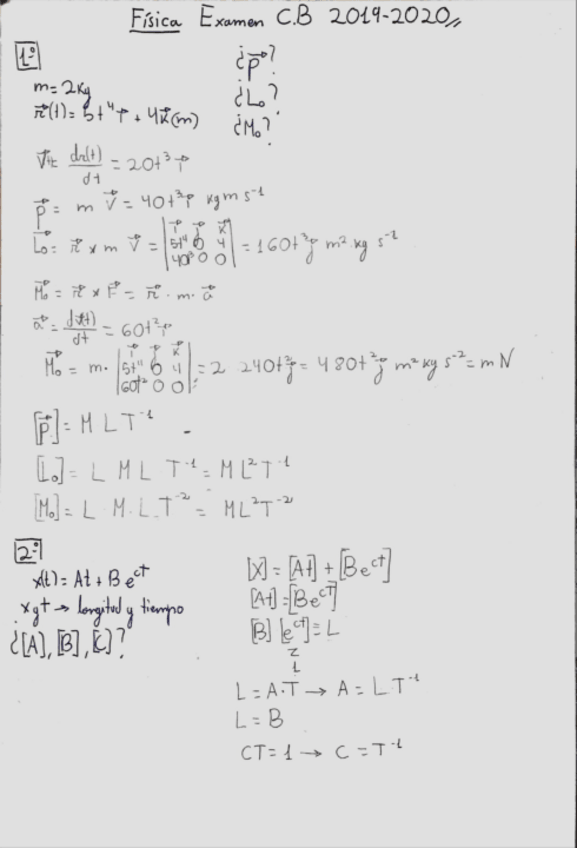 Física Examen C.B 2019-2020
1º
m = 2 kg
r⃗(t) = 5t⁴ i⃗ + 4 k⃗ (m)
¿p⃗?
¿L₀?
¿M₀?
V⃗ = dr(t)/dt = 20t³ i⃗
p⃗ = m V⃗ = 40t³ i⃗ kg m s⁻¹
L⃗₀ = r⃗ x m V⃗ = | i⃗ j⃗ k⃗ ; 5t⁴ 0 4 ; 40t³ 0 0 | = 160t³ j⃗ m² kg s⁻²
M⃗₀ = r⃗ x F⃗ = r⃗ · m · a⃗
a⃗ = dv(t)/dt = 60t² i⃗
M⃗₀ = m · | i⃗ j⃗ k⃗ ; 5t⁴ 0 4 ; 60t² 0 0 | = 2 240t² j⃗ = 480t² j⃗ m² kg s⁻² = m N
[p⃗] = M L T⁻¹
[L₀] = L M L T⁻¹ = M L² T⁻¹
[M₀] = L · M · L · T⁻² = M L² T⁻²
2º
x(t) = At + B e^ct
x y t → longitud y tiempo
¿[A], [B], [C]?
[X] = [At] + [B e^ct]
[At] = [B e^ct]
[B] [e^ct] = L
1
L = A·T → A = L T⁻¹
L = B
CT = 1 → C = T⁻¹